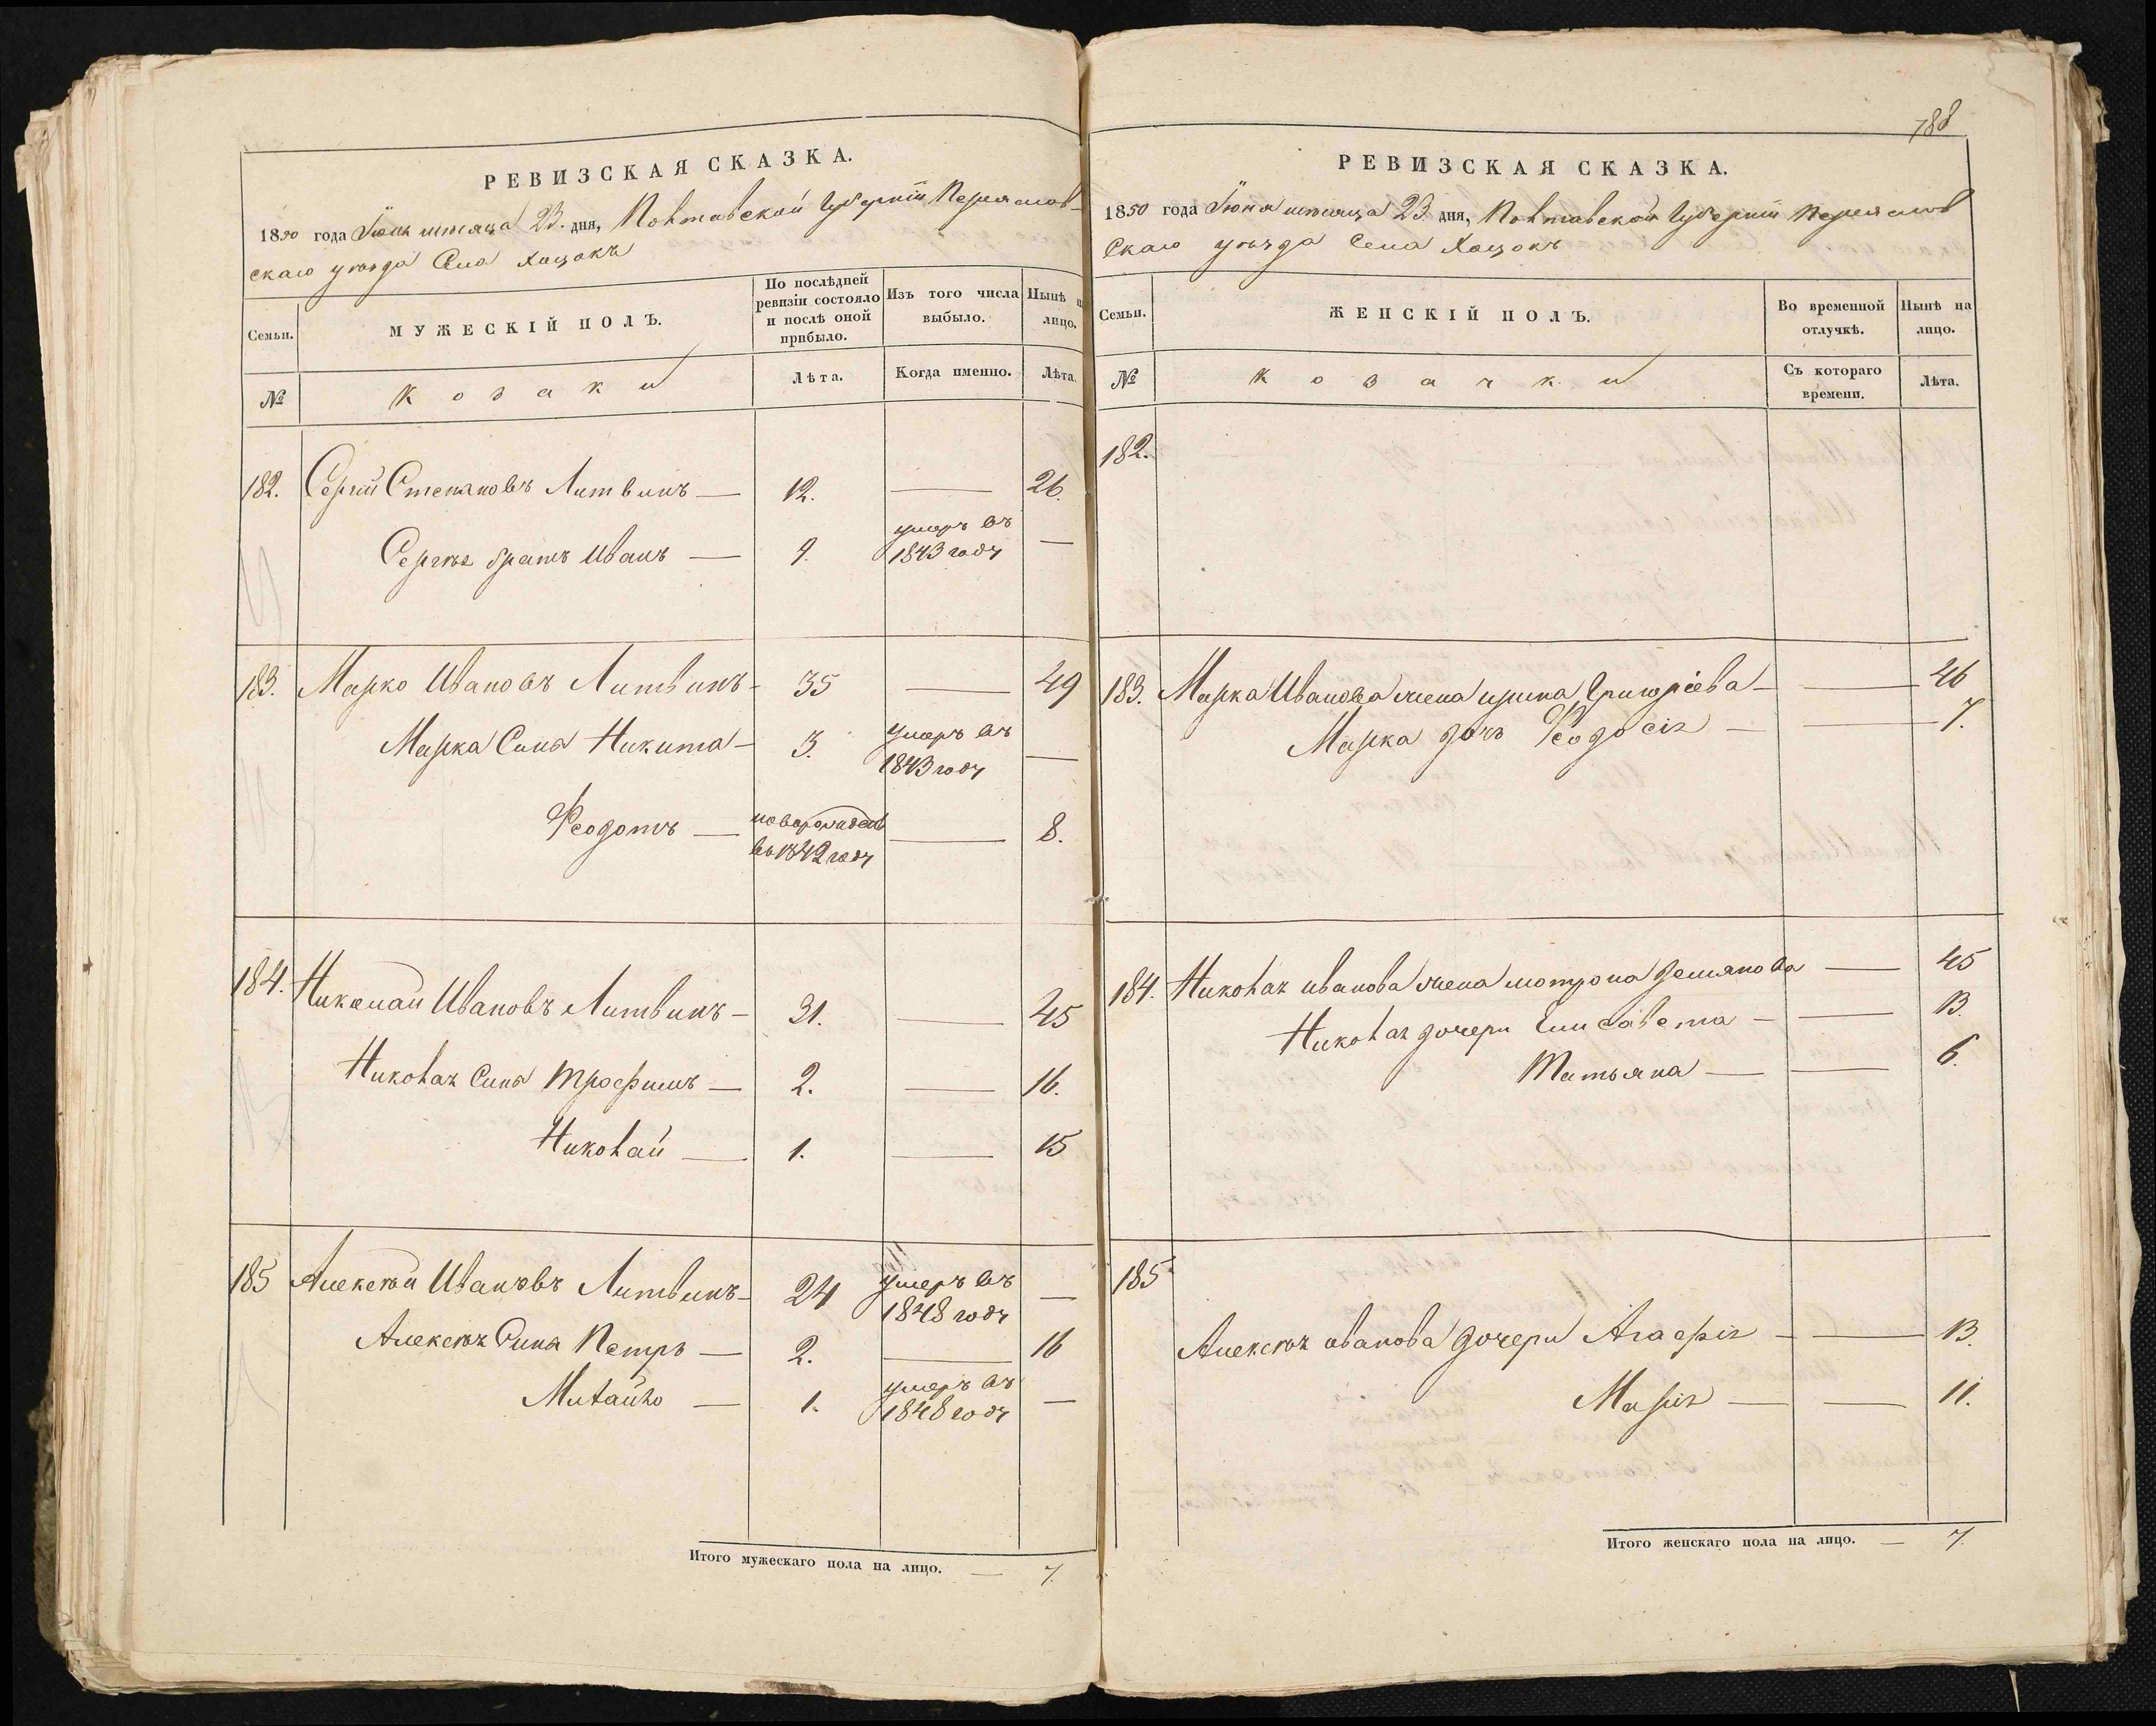 788
РЕВИЗСКАЯ СКАЗКА.
1850 года Іюня мѣсяца 23. дня, Полтавской Губерніи Переяслов-
скаго уѣзда Села Хоцокъ
Семьи.
МУЖЕСКІЙ ПОЛЪ.
По послѣдней ревизіи состояло и послѣ оной прибыло.
Изъ того числа выбыло.
Нынѣ на лицо.
№
Козаки
Лѣта.
Когда именно.
Лѣта.
182. Сергій Степановъ Литвинъ — 12. — 26.
Сергѣя братъ Иванъ — 9. умеръ въ 1843 году —
183. Марко Ивановъ Литвинъ - 35 — 49
Марка Сынъ Никита - 3. умеръ въ 1843 году —
Феодотъ — новорожден въ 1842 году — 8.
184. Николай Ивановъ Литвинъ - 31. — 45
Николая Сынъ Трофимъ — 2. — 16.
Николай — 1. — 15
185 Алексѣй Ивановъ Литвинъ - 24 умеръ въ 1848 году —
Алексѣя Сынъ Петръ — 2. — 16
Михайло — 1. умеръ въ 1848 году —
Итого мужескаго пола на лицо. — 7.
РЕВИЗСКАЯ СКАЗКА.
1850 года Іюня мѣсяца 23. дня, Полтавской Губерніи Переяслов
скаго уѣзда Села Хоцокъ
Семьи.
ЖЕНСКІЙ ПОЛЪ.
Во временной отлучкѣ.
Нынѣ на лицо.
№
Козачки
Съ котораго времени.
Лѣта.
182.
183. Марка Иванова жена ирина Григоріева — — 46
Марка дочь Феодосія — — 7.
184. Николая иванова жена мотрона демянова — 45
Николая дочери Елисавета — — 13.
Татьяна — — 6.
185
Алексѣя иванова дочери Агафія — — 13.
Марія — — 11.
Итого женскаго пола на лицо. — 7.